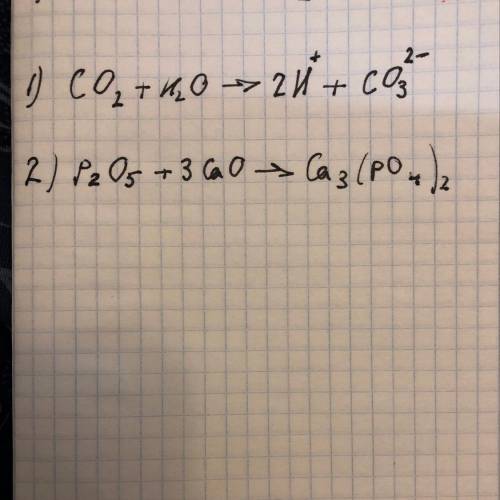 1) CO₂ + H₂O → 2H⁺ + CO₃²⁻
2) P₂O₅ + 3CaO → Ca₃(PO₄)₂